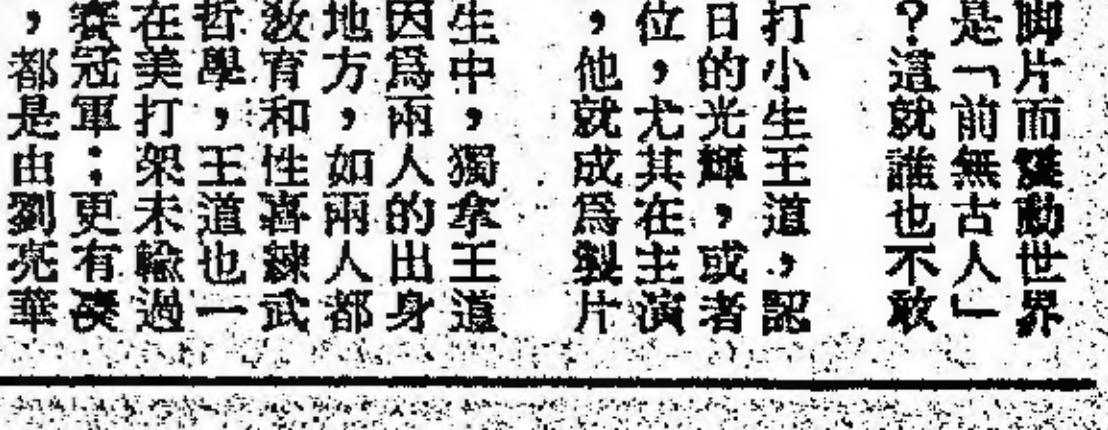 脚片而轟動世界
是「前無古人」
？這就誰也不敢
打小生王道，認
日的光輝，或者
位，尤其在主演
，他就成爲製片
生中，獨拿王道
因爲兩人的出身
地方，如兩人都
敎育和性喜練武
哲學，王道也一
在美打架未輸過
賽冠軍；更有
，都是由劉亮華